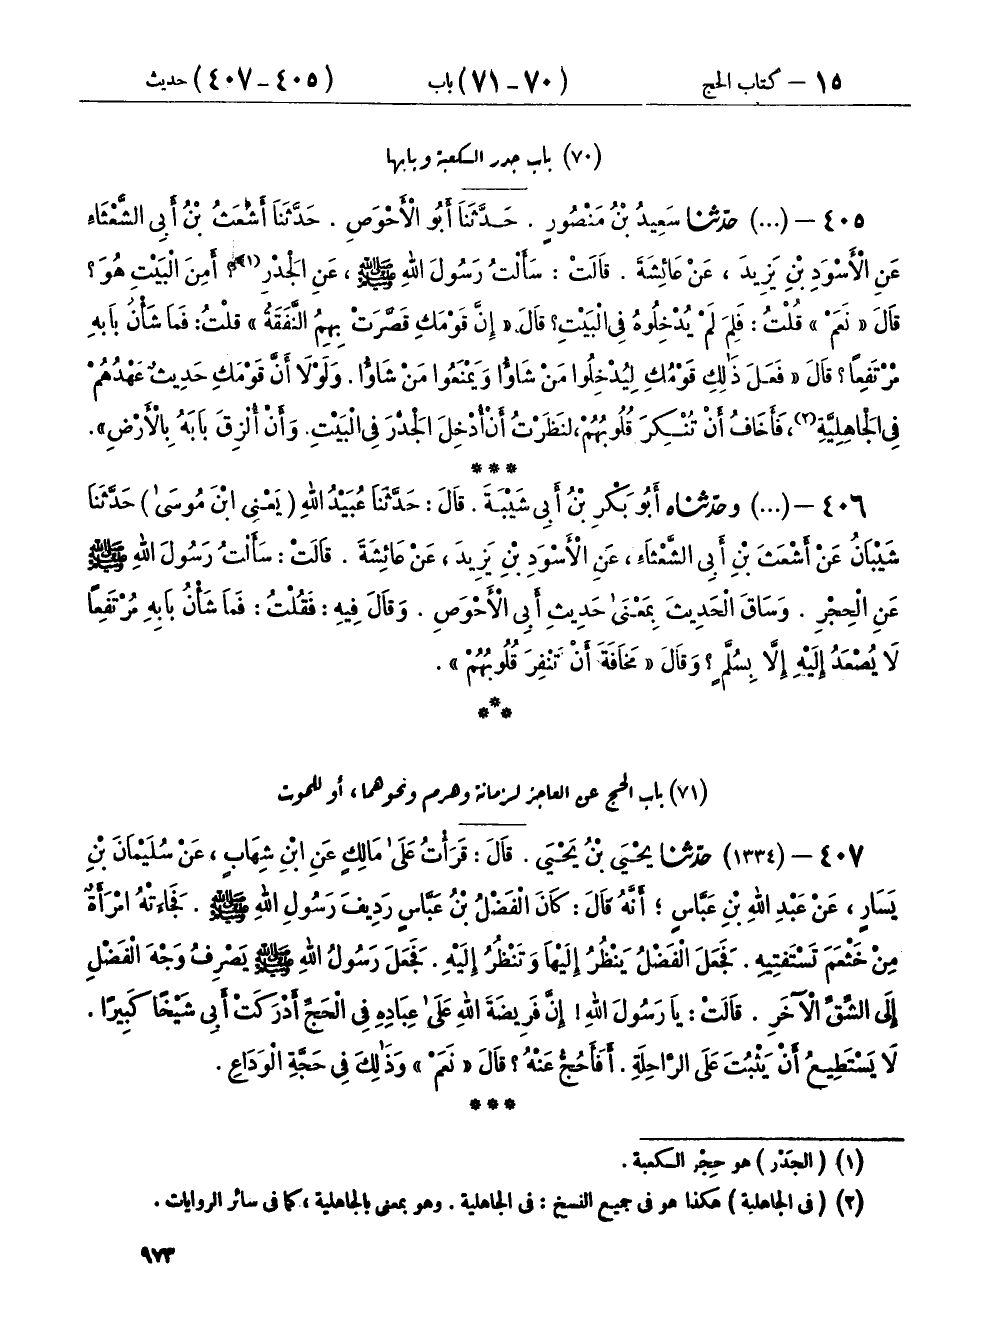 ١٥ – كتاب الحج (٧٠ – ٧١) باب (٤٠٥ – ٤٠٧) حديث
(٧٠) باب جدر الكعبة وبابها
٤٠٥ – (...) حدثنا سَعِيدُ بْنُ مَنْصُورٍ . حَدَّثَنَا أَبُو الْأَحْوَصِ . حَدَّثَنَا أَشْعَثُ بْنُ أَبِي الشَّعْثَاءِ
عَنِ الْأَسْوَدِ بْنِ يَزِيدَ ، عَنْ عَائِشَةَ . قَالَتْ : سَأَلْتُ رَسُولَ اللهِ ﷺ ، عَنِ الْجَدْرِ(١)؟ أَمِنَ الْبَيْتِ هُوَ ؟
قَالَ « نَعَمْ » قُلْتُ : فَلِمَ لَمْ يُدْخِلُوهُ فِي الْبَيْتِ؟ قَالَ « إِنَّ قَوْمَكِ قَصَّرَتْ بِهِمُ النَّفَقَةُ » قلتُ: فَمَا شَأْنُ بَابِهِ
مُرْتَفِعًا ؟ قَالَ « فَعَلَ ذَٰلِكِ قَوْمُكِ لِيُدْخِلُوا مَنْ شَاؤُا وَيَمْنَعُوا مَنْ شَاؤُا . وَلَوْلَا أَنَّ قَوْمَكِ حَدِيثٌ عَهْدُهُمْ
فِي الْجَاهِلِيَّةِ(٢)، فَأَخَافُ أَنْ تُنْكِرَ قُلُوبُهُمْ، لَنَظَرْتُ أَنْ أُدْخِلَ الْجَدْرَ فِي الْبَيْتِ. وَأَنْ أُلْزِقَ بَابَهُ بِالْأَرْضِ».
***
٤٠٦ – (...) وحدثناه أَبُو بَكْرِ بْنُ أَبِي شَيْبَةَ . قَالَ : حَدَّثَنَا عُبَيْدُ اللهِ ( يَعْنِي ابْنَ مُوسَىٰ ) حَدَّثَنَا
شَيْبَانُ عَنْ أَشْعَثَ بْنِ أَبِي الشَّعْثَاءِ ، عَنِ الْأَسْوَدِ بْنِ يَزِيدَ ، عَنْ عَائِشَةَ . قَالَتْ : سَأَلْتُ رَسُولَ اللهِ ﷺ
عَنِ الْحِجْرِ . وَسَاقَ الْحَدِيثَ بِمَعْنَىٰ حَدِيثِ أَبِي الْأَحْوَصِ . وَقَالَ فِيهِ : فَقُلْتُ : فَمَا شَأْنُ بَابِهِ مُرْتَفِعًا
لَا يُصْعَدُ إِلَيْهِ إِلَّا بِسُلَّمٍ ؟ وَقَالَ « مَخَافَةَ أَنْ تَنْفِرَ قُلُوبُهُمْ » .
***
(٧١) باب الحج عن العاجز لزمانة وهرم ونحوهما، أو للموت
٤٠٧ – (١٣٣٤) حدثنا يَحْيَى بْنُ يَحْيَى . قَالَ : قَرَأْتُ عَلَىٰ مَالِكٍ عَنِ ابْنِ شِهَابٍ ، عَنْ سُلَيْمَانَ بْنِ
يَسَارٍ ، عَنْ عَبْدِ اللهِ بْنِ عَبَّاسٍ ؛ أَنَّهُ قَالَ : كَانَ الْفَضْلُ بْنُ عَبَّاسٍ رَدِيفَ رَسُولِ اللهِ ﷺ . فَجَاءَتْهُ امْرَأَةٌ
مِنْ خَثْعَمَ تَسْتَفْتِيهِ . فَجَعَلَ الْفَضْلُ يَنْظُرُ إِلَيْهَا وَتَنْظُرُ إِلَيْهِ. فَجَعَلَ رَسُولُ اللهِ ﷺ يَصْرِفُ وَجْهَ الْفَضْلِ
إِلَى الشِّقِّ الْآخَرِ . قَالَتْ : يَا رَسُولَ اللهِ ! إِنَّ فَرِيضَةَ اللهِ عَلَىٰ عِبَادِهِ فِي الْحَجِّ أَدْرَكَتْ أَبِي شَيْخًا كَبِيرًا .
لَا يَسْتَطِيعُ أَنْ يَثْبُتَ عَلَى الرَّاحِلَةِ . أَفَأَحُجُّ عَنْهُ ؟ قَالَ « نَعَمْ » وَذَٰلِكَ فِي حَجَّةِ الْوَدَاعِ .
***
(١) ( الجَدْر ) هو حِجْر الكعبة .
(٢) ( في الجاهلية ) هكذا هو في جميع النسخ : في الجاهلية . وهو بمعنى بالجاهلية ، كما في سائر الروايات .
٩٧٣